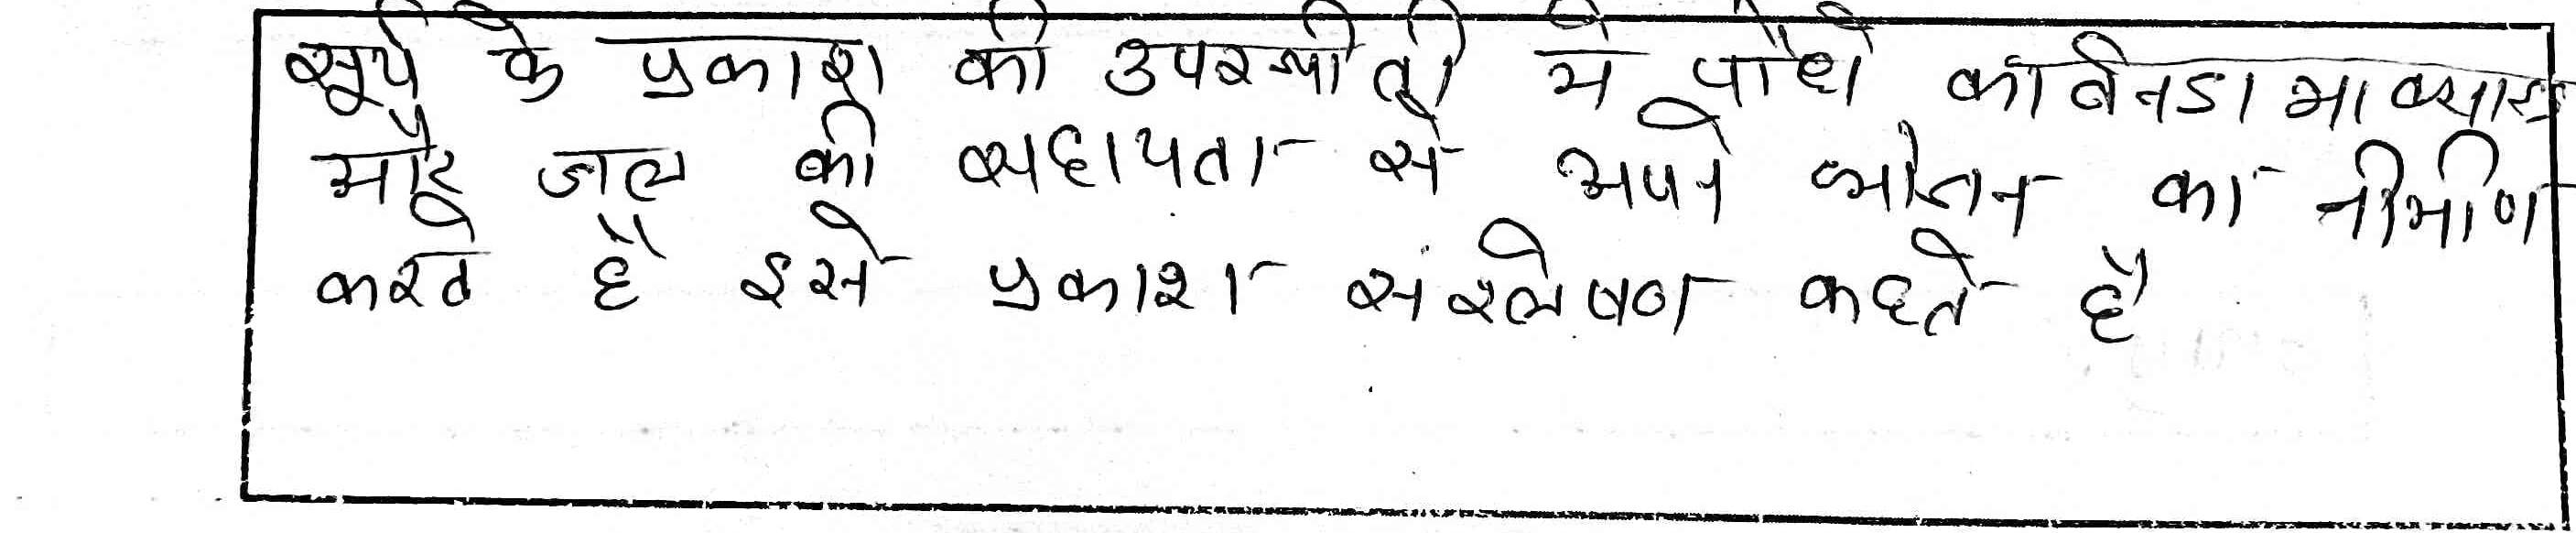 सूर्य के प्रकाश की उपस्थीती मे पौधे कार्बनडाआक्साइड
और जल की सहायता से अपने भोजन का नीर्माण
करते है इसे प्रकाश संश्लेषण कहते है